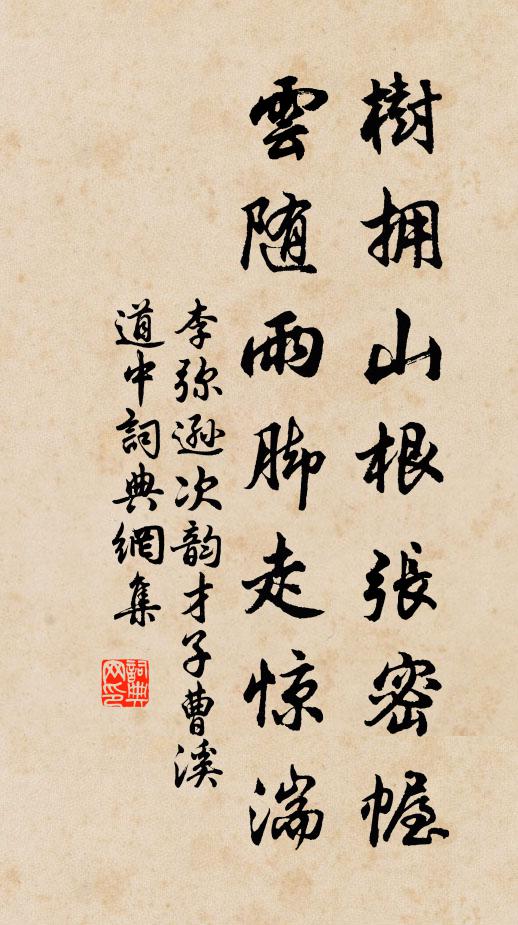 樹拥山根張密幄
雲随雨脚走惊湍
李弥逊次韵才子曹溪
道中詞典網集
詞典
网印